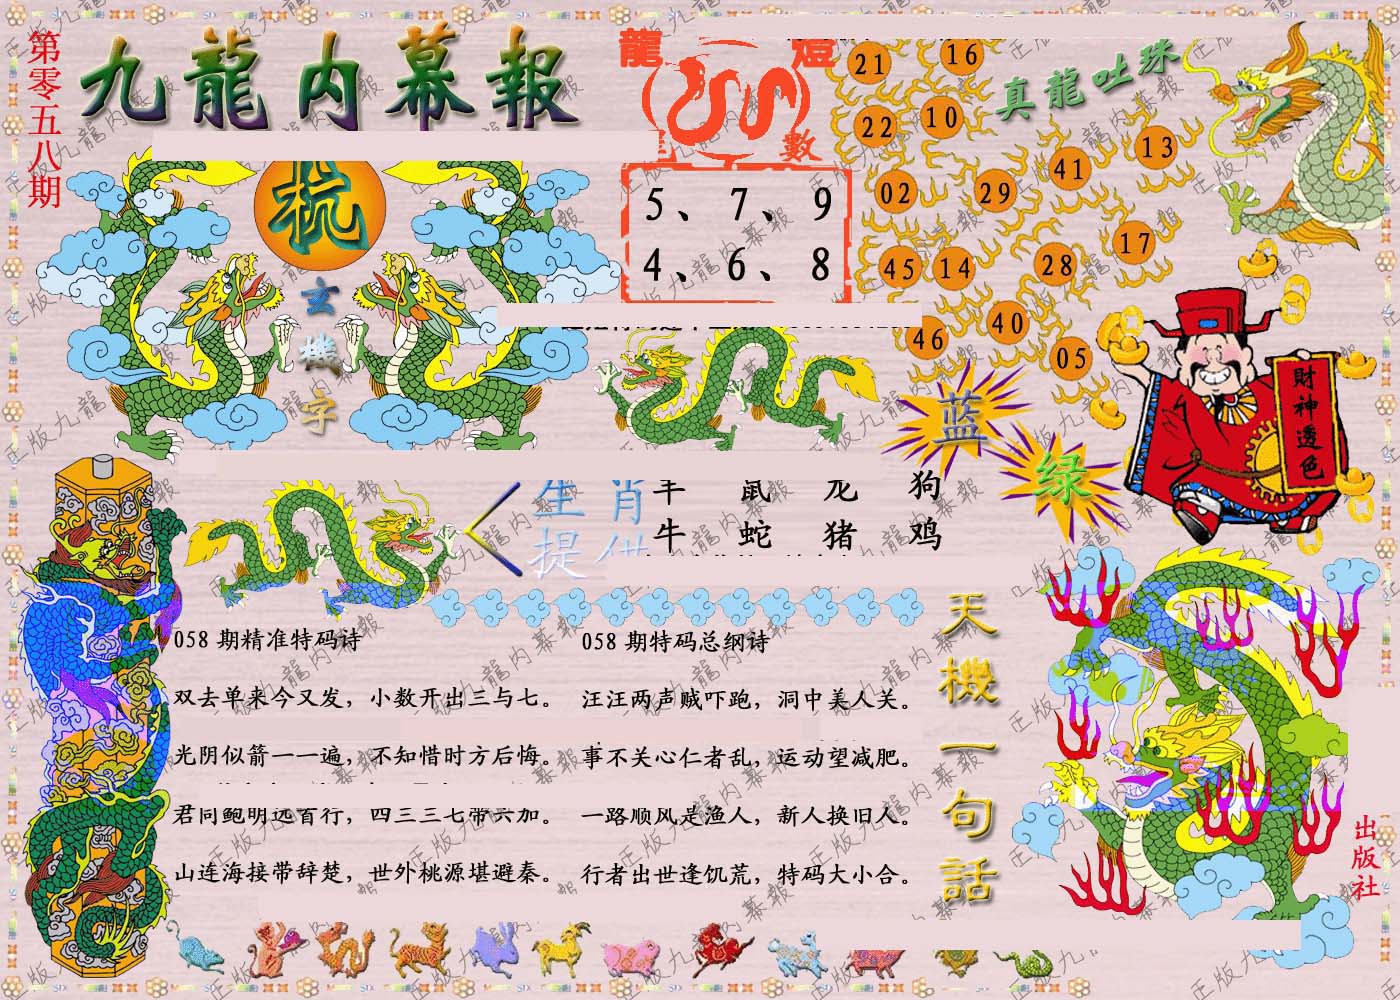 第零五八期
九龍内幕報
杭
玄機字
龍燈
數
5、7、9
4、6、8
真龍吐珠
21 16
22 10
13
41
02 29
17
45 14 28
46 40
05
蓝
绿
財神透色
生肖提供
羊 鼠 龙 狗
牛 蛇 猪 鸡
058 期精准特码诗
双去单来今又发，小数开出三与七。
光阴似箭一一遍，不知惜时方后悔。
君同鲍明远百行，四三三七带六加。
山连海接带辞楚，世外桃源堪避秦。
058 期特码总纲诗
汪汪两声贼吓跑，洞中美人关。
事不关心仁者乱，运动望减肥。
一路顺风是渔人，新人换旧人。
行者出世逢饥荒，特码大小合。
天機一句話
出版社
正版九龍内幕報